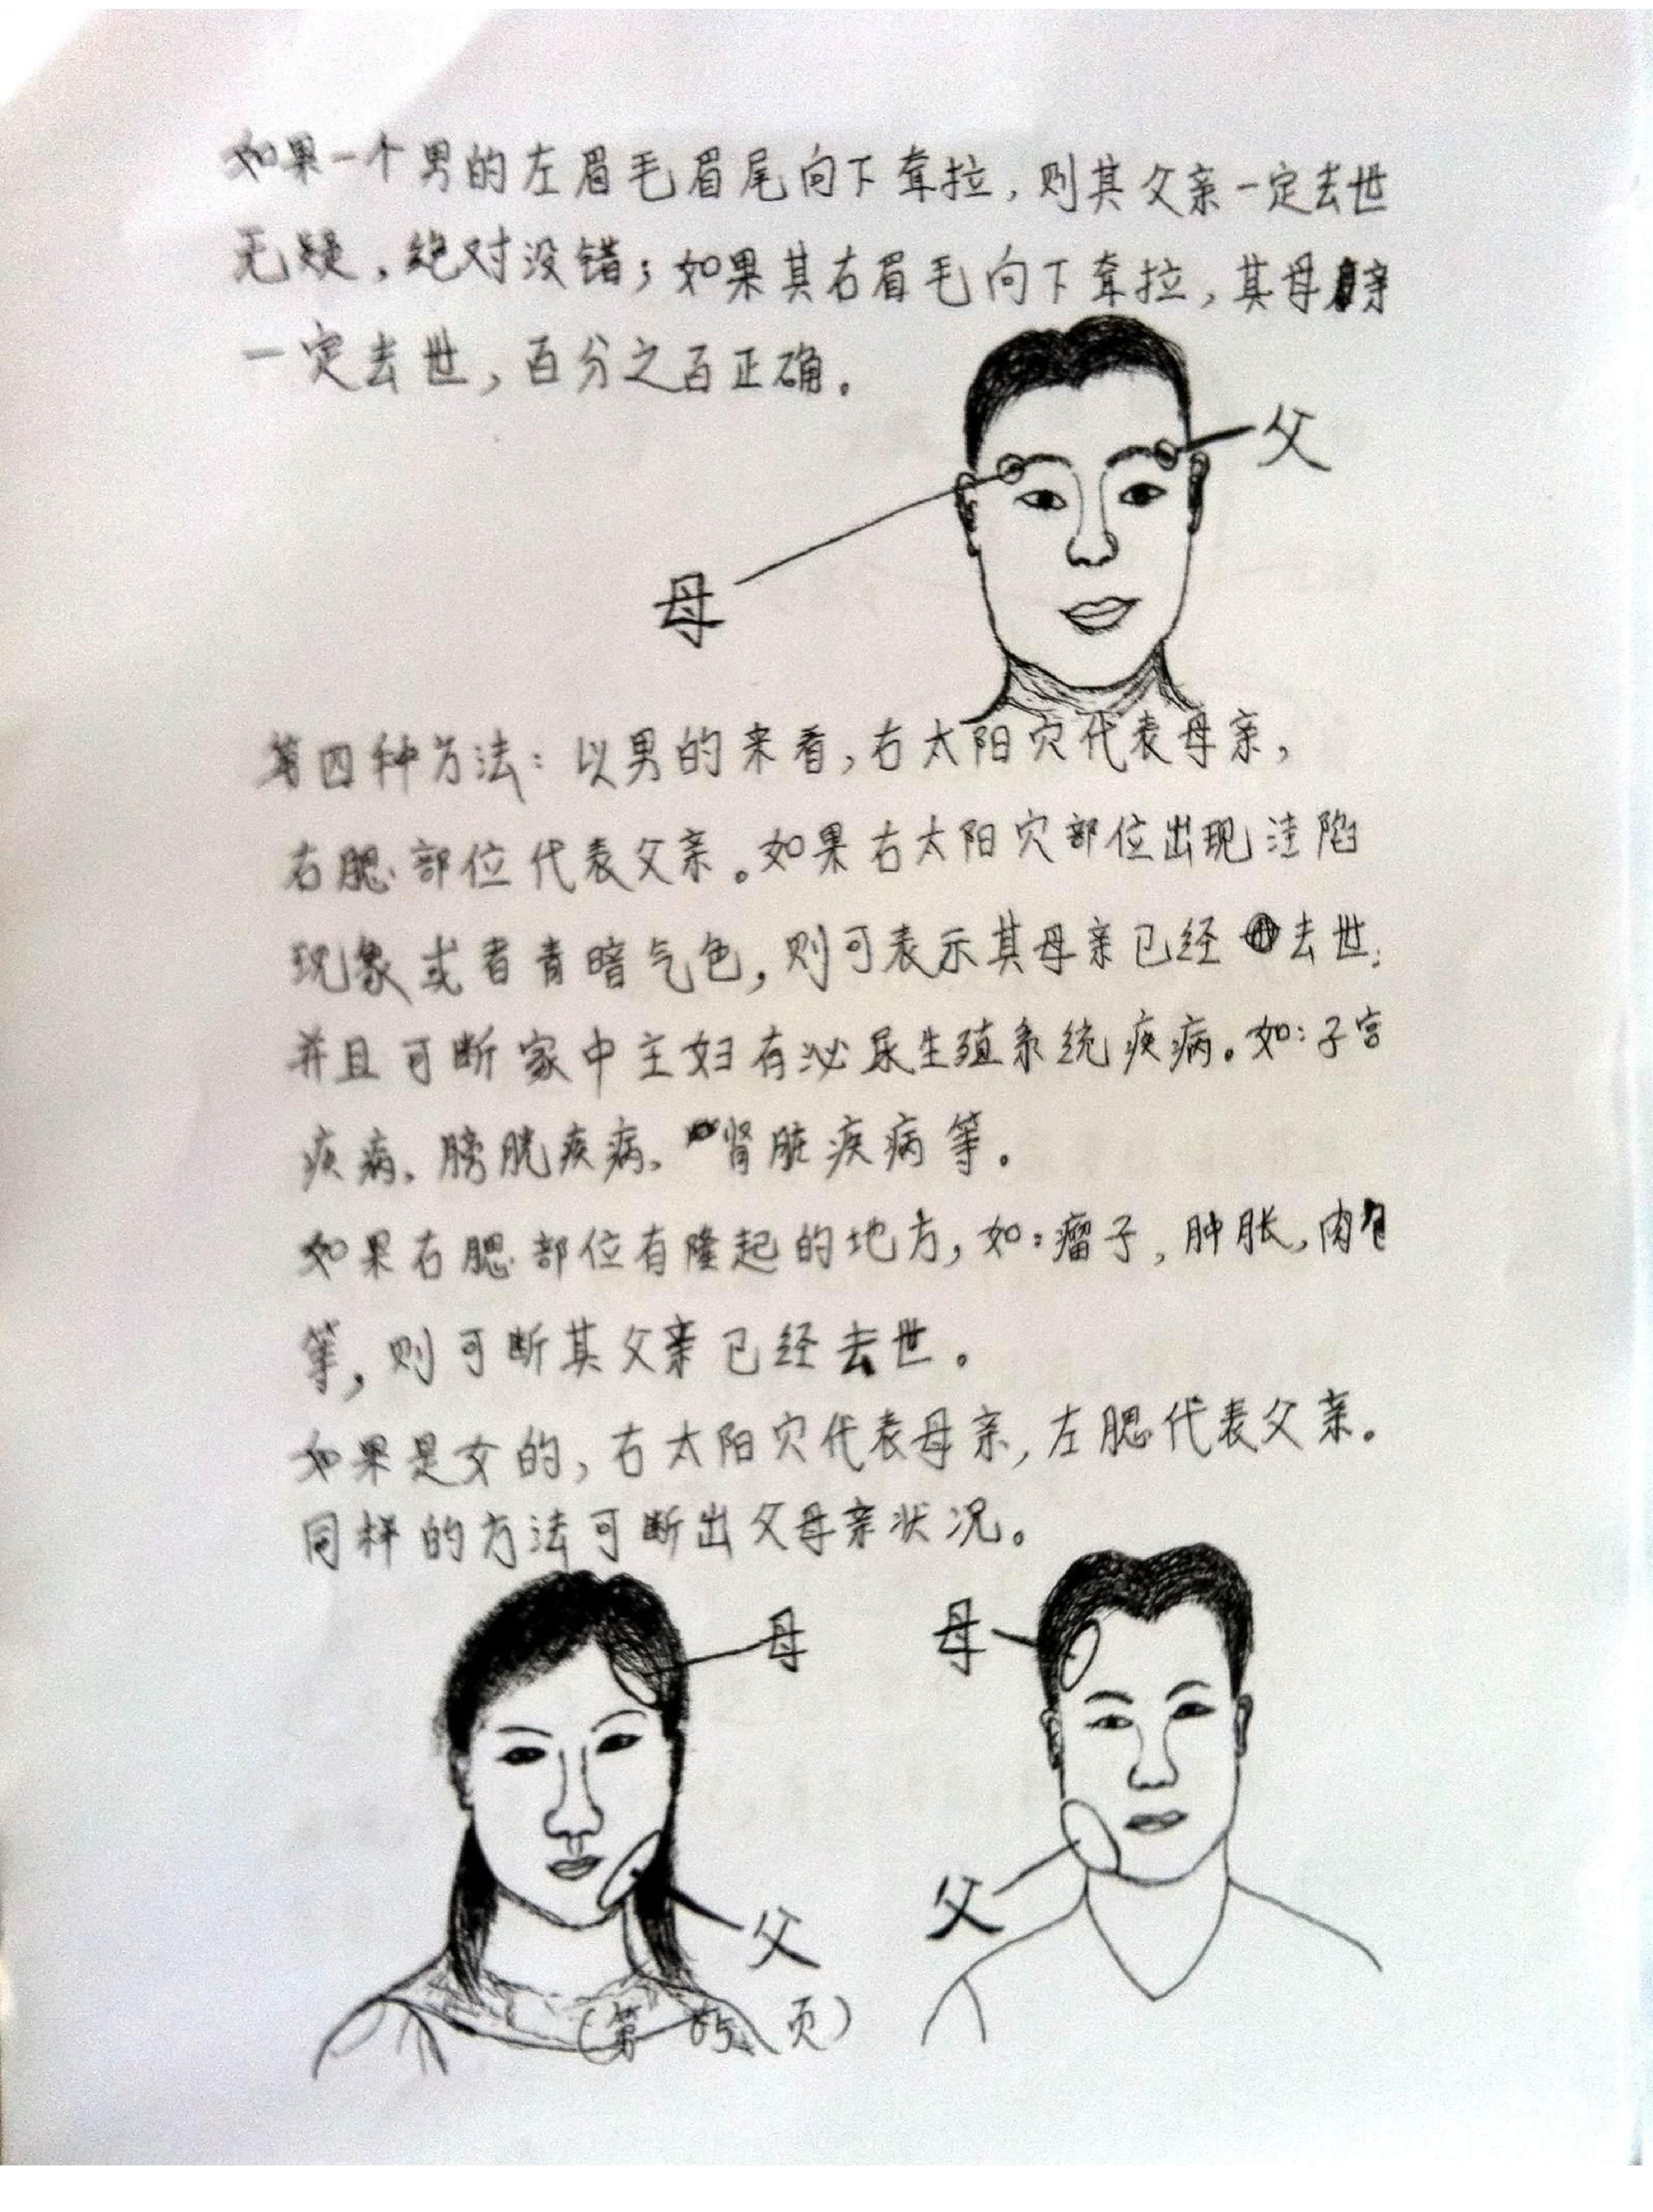 如果一个男的左眉毛眉尾向下耷拉，则其父亲一定去世
无疑，绝对没错；如果其右眉毛向下耷拉，其母亲
一定去世，百分之百正确。
父
母
第四种方法：以男的来看，右太阳穴代表母亲，
右腮部位代表父亲。如果右太阳穴部位出现洼陷
现象或者青暗气色，则可表示其母亲已经去世；
并且可断家中主妇有泌尿生殖系统疾病。如：子宫
疾病、膀胱疾病、肾脏疾病等。
如果右腮部位有隆起的地方，如：瘤子，肿胀，肉包
等，则可断其父亲已经去世。
如果是女的，右太阳穴代表母亲，左腮代表父亲。
同样的方法可断出父母亲状况。
母
母
父
父
（第 85 页）